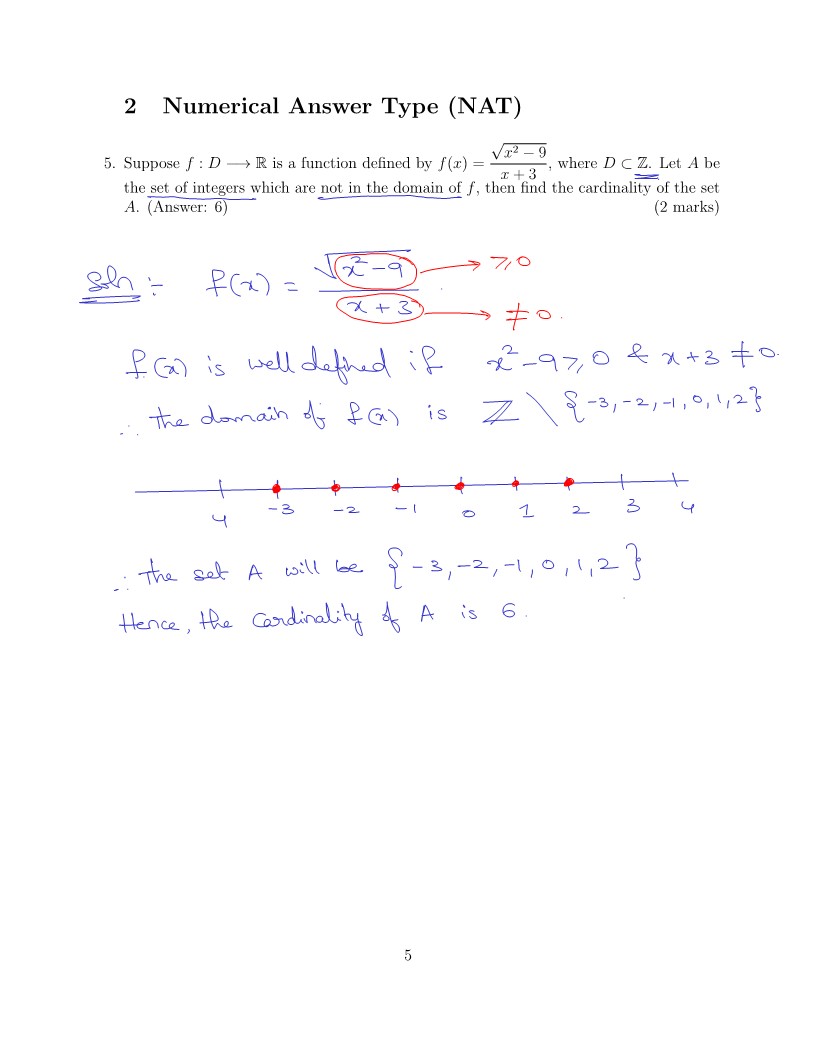 2 Numerical Answer Type (NAT)
5. Suppose f : D ⟶ ℝ is a function defined by f(x) = √(x² − 9) / (x + 3), where D ⊂ ℤ. Let A be
the set of integers which are not in the domain of f, then find the cardinality of the set
A. (Answer: 6) (2 marks)
Soln :- f(x) = √(x² − 9) / (x + 3)
→ ≥ 0
→ ≠ 0.
f(x) is well defined if x² − 9 ≥ 0 & x + 3 ≠ 0.
∴ the domain of f(x) is ℤ \ {-3, -2, -1, 0, 1, 2}
4 -3 -2 -1 0 1 2 3 4
∴ the set A will be {-3, -2, -1, 0, 1, 2}
Hence, the Cardinality of A is 6.
5